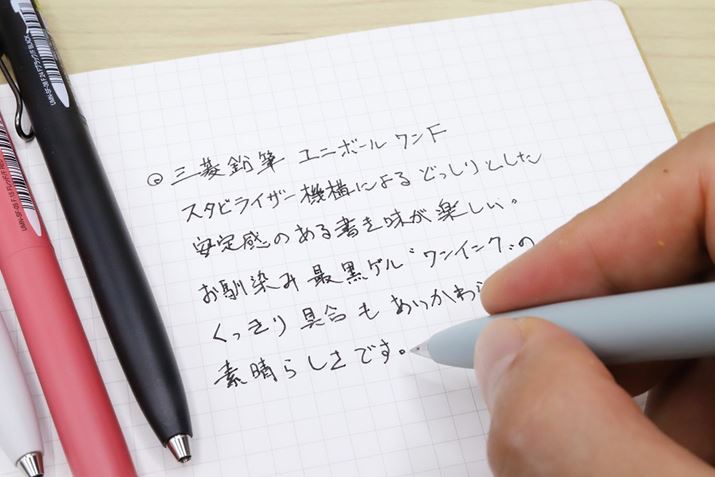 ◎三菱鉛筆 ユニボール ワンF
スタビライザー機構によるどっしりとした
安定感のある書き味が楽しい。
お馴染み最黒ゲル“ワンインク”の
くっきり具合もあいかわら
素晴らしさです。